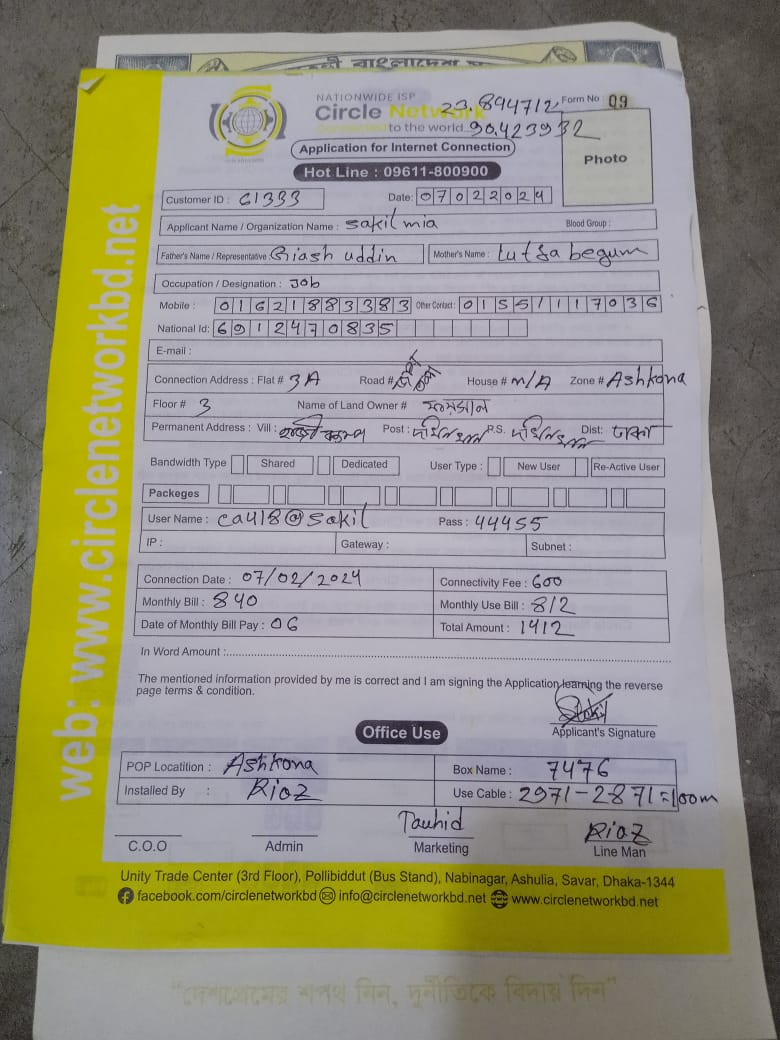 NATIONWIDE ISP
Circle Network
Connected to the world
23.894712,
90.423932
Form No 09
Application for Internet Connection
Hot Line : 09611-800900
Photo
Customer ID : 61333 Date: 07022024
Applicant Name / Organization Name : sakil mia Blood Group :
Father's Name / Representative : Giash uddin Mother's Name : Lutfa begum
Occupation / Designation : Job
Mobile : 01621883383 Other Contact : 01551117036
National Id: 6912470835
E-mail :
Connection Address : Flat # 3A Road # House # N/A Zone # Ashkona
Floor # 3 Name of Land Owner # ফয়সাল
Permanent Address : Vill : Post : P.S. Dist: ঢাকা
Bandwidth Type Shared Dedicated User Type : New User Re-Active User
Packeges
User Name : ca418@sakil Pass : 44455
IP : Gateway : Subnet :
Connection Date : 07/02/2024 Connectivity Fee : 600
Monthly Bill : 840 Monthly Use Bill : 812
Date of Monthly Bill Pay : 06 Total Amount : 1412
In Word Amount :
The mentioned information provided by me is correct and I am signing the Application learning the reverse
page terms & condition.
Sakil
Applicant's Signature
Office Use
POP Locatition : Ashkona Box Name : 7476
Installed By : Riaz Use Cable : 2971-2871=100m
Tauhid Riaz
C.O.O Admin Marketing Line Man
Unity Trade Center (3rd Floor), Pollibiddut (Bus Stand), Nabinagar, Ashulia, Savar, Dhaka-1344
facebook.com/circlenetworkbd info@circlenetworkbd.net www.circlenetworkbd.net
web: www.circlenetworkbd.net
"দেশপ্রেমের শপথ নিন, দুর্নীতিকে বিদায় দিন"